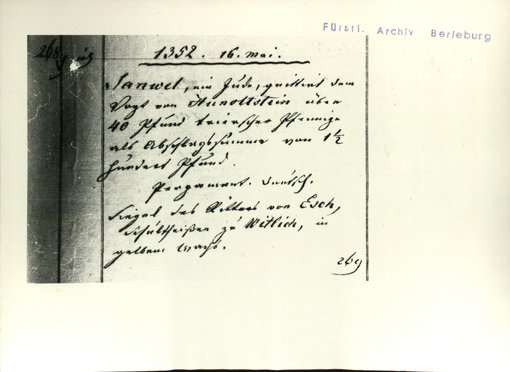 Fürstl. Archiv Berleburg
268
1352. 16. Mai.
Sanwel, ein Jude, quittirt dem
Vogt von Hunoltstein über
40 Pfund trierscher Pfennige
als Abschlagssumme von 1 1/2
hundert Pfund.
Pergament. Deutsch.
Siegel des Ritters von Esch,
Schultheißen zu Wittlich, in
gelbem Wachs.
269